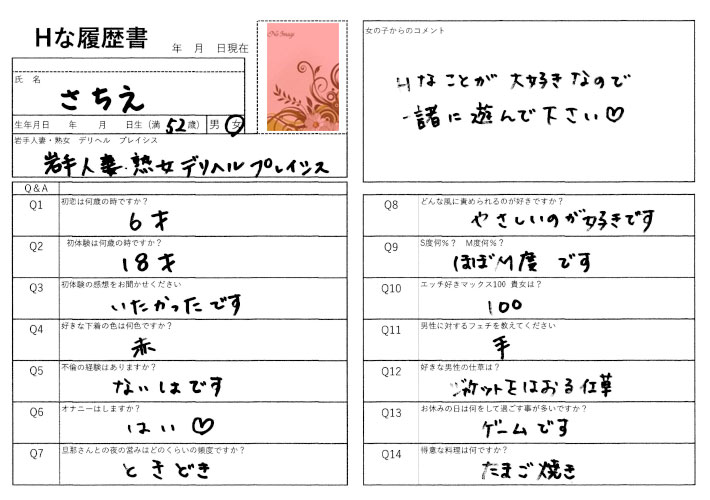 Hな履歴書
年 月 日現在
No Image
氏 名
さちえ
生年月日 年 月 日生（満 52 歳） 男 女
岩手人妻・熟女 デリヘル プレイシス
岩手人妻・熟女デリヘル プレイシス
Q&A
Q1 初恋は何歳の時ですか？
6才
Q2 初体験は何歳の時ですか？
18才
Q3 初体験の感想をお聞かせください
いたかったです
Q4 好きな下着の色は何色ですか？
赤
Q5 不倫の経験はありますか？
ないしょです
Q6 オナニーはしますか？
はい ♡
Q7 旦那さんとの夜の営みはどのくらいの頻度ですか？
ときどき
女の子からのコメント
Hなことが 大好きなので
一諸に遊んで下さい♡
Q8 どんな風に責められるのが好きですか？
やさしいのが好きです
Q9 S度何%？ M度何%？
ほぼM度 です
Q10 エッチ好きマックス100 貴女は？
100
Q11 男性に対するフェチを教えてください
手
Q12 好きな男性の仕草は？
ジャケットをはおる仕草
Q13 お休みの日は何をして過ごす事が多いですか？
ゲームです
Q14 得意な料理は何ですか？
たまご焼き